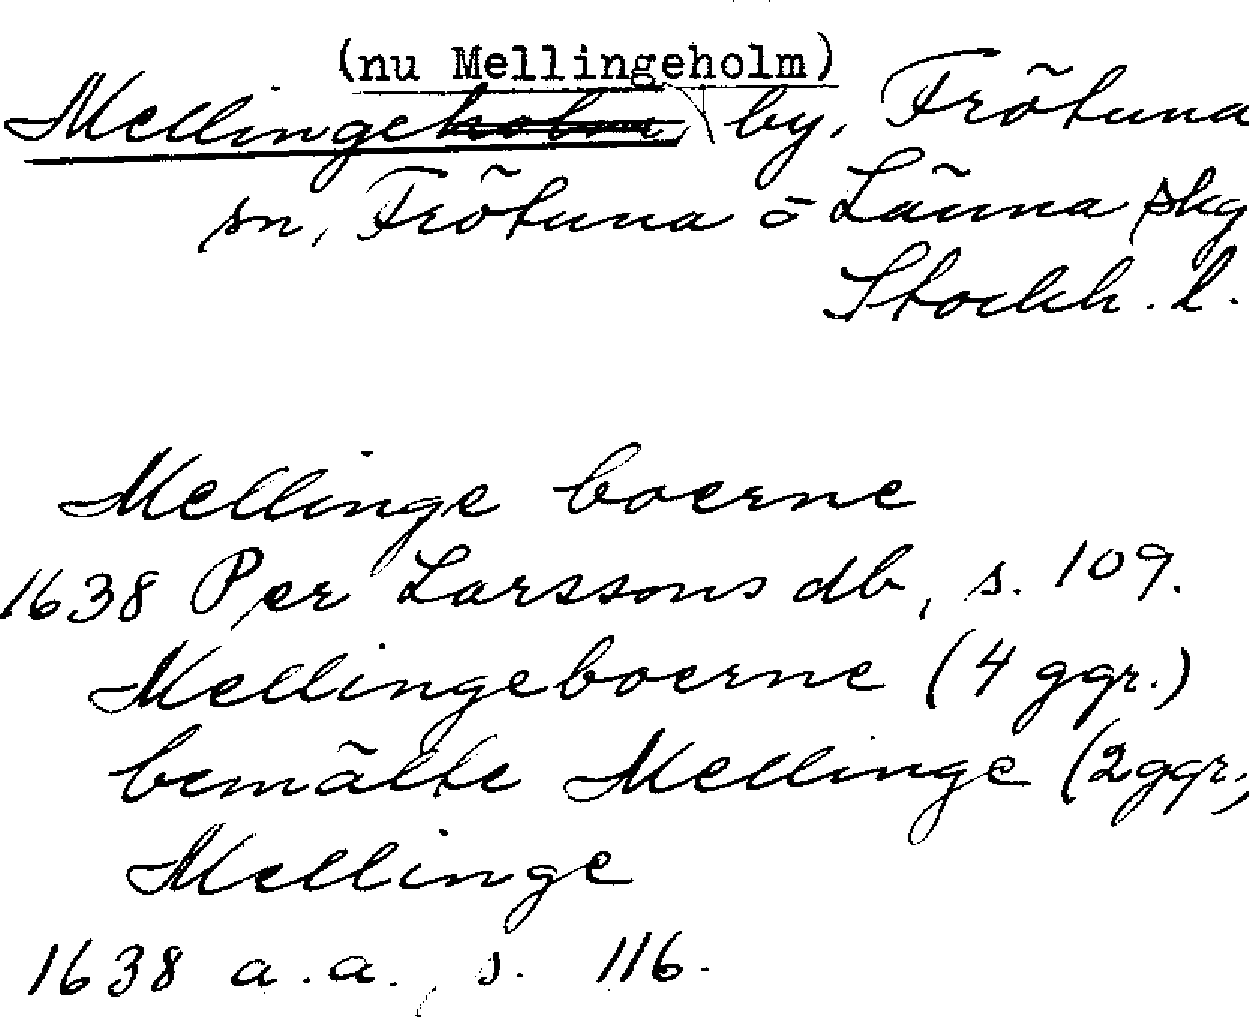 (nu Mellingeholm)
Mellingeholm, by, Frötuna
sn, Frötuna o Länna skg
Stockh. l.
Mellinge boerne
1638 Per Larssons db, s. 109.
Mellingeboerne (4 ggr.)
bemälte Mellinge (2 ggr.)
Mellinge
1638 a.a., s. 116.